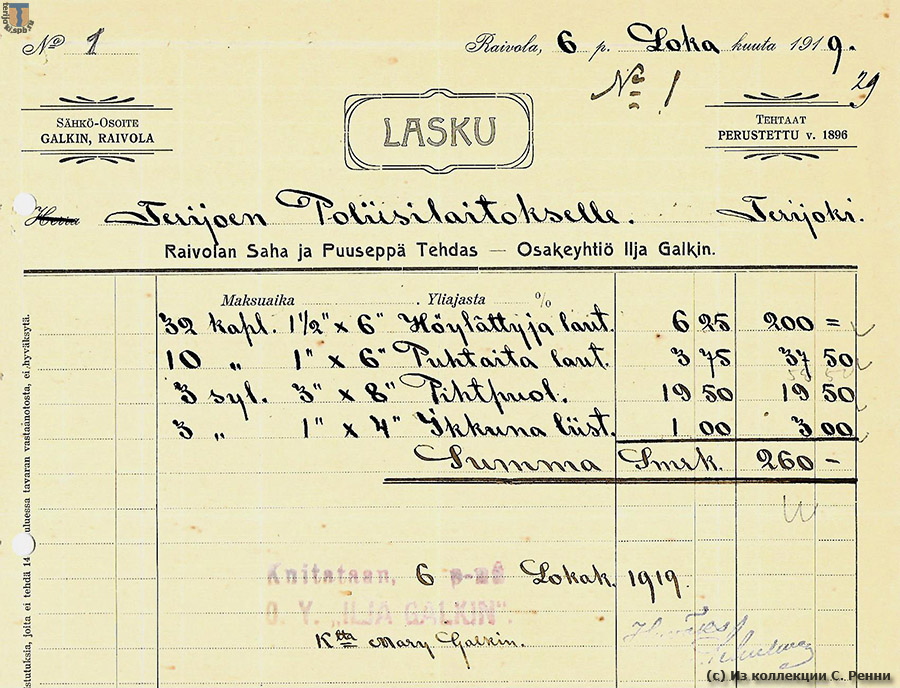 No 1
Raivola, 6 p. Loka kuuta 1919.
No 1
29
SÄHKÖ-OSOITE
GALKIN, RAIVOLA
LASKU
TEHTAAT
PERUSTETTU v. 1896
Herra Terijoen Poliisilaitokselle. Terijoki.
Raivolan Saha ja Puuseppä Tehdas — Osakeyhtiö Ilja Galkin.
Maksuaika Yliajasta %
32 kapl. 1½" x 6" Höylättyja laut. 6 25 200 =
10 " 1" x 6" Puhtaita laut. 3 75 37 50
3 syl. 3" x 8" Pihtpuol. 19 50 19 50
3 " 1" x 4" Ikkuna liist. 1 00 3 00
Summa Smrk. 260 -
Kuitataan, 6 p-nä Lokak. 1919.
O. Y. „ILJA GALKIN".
Ktta Mary Galkin.
uluessa tavaran vastaanotosta, ei hyväksytä.
istutuksia, joita ei tehdä 14
(c) Из коллекции С. Ренни